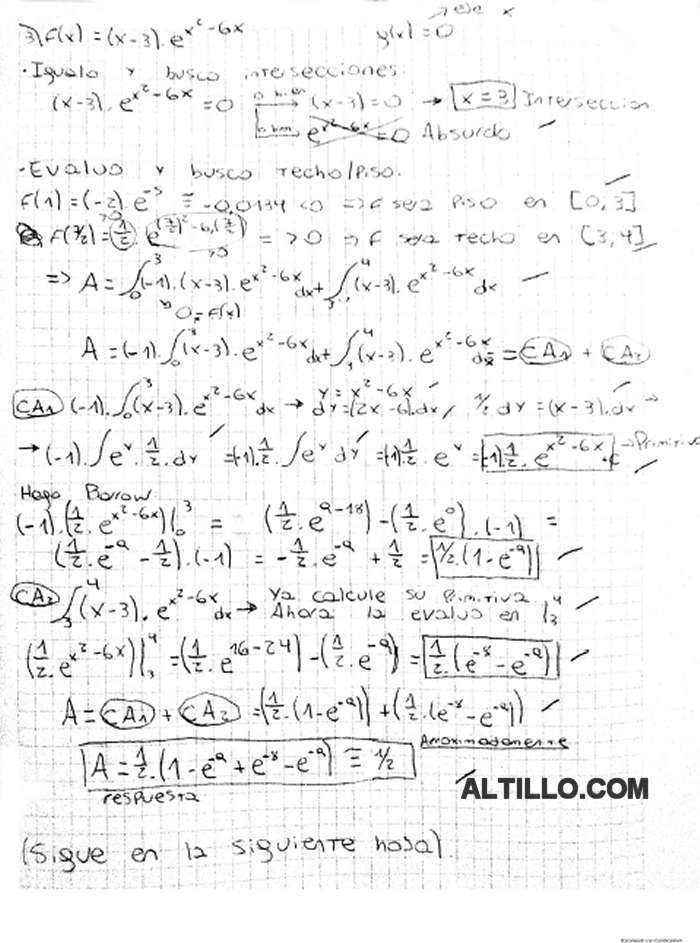 → eje x
3) F(x) = (x-3).e^(x²-6x)    y(x) = 0
· Igualo y busco intersecciones.
(x-3).e^(x²-6x) = 0 → o bien (x-3) = 0 → x = 3 Interseccion
o bien e^(x²-6x) = 0 Absurdo
· Evaluo y busco techo/piso.
F(1) = (-2).e^(-5) ≅ -0,0134 <0 => F sera piso en [0,3]
F(7/2) = (1/2).e^((7/2)²-6.(7/2)) = >0 => F sera techo en [3,4]
>0 >0
=> A = ∫₀³ (-1).(x-3).e^(x²-6x) dx + ∫₃⁴ (x-3).e^(x²-6x) dx
→ 0 - F(x)
A = (-1).∫₀³ (x-3).e^(x²-6x) dx + ∫₃⁴ (x-3).e^(x²-6x) dx = CA1 + CA2
CA1 (-1).∫₀³ (x-3).e^(x²-6x) dx → y = x²-6x
dy = (2x-6).dx, 1/2 dy = (x-3).dx →
→ (-1).∫ e^y.1/2.dy = (-1).1/2.∫ e^y dy = (-1).1/2.e^y = (-1).1/2.e^(x²-6x) + C → Primitiva
Hago Barrow
(-1).(1/2.e^(x²-6x))|₀³ = (1/2.e^(9-18)) - (1/2.e^0).(-1) =
(1/2.e^(-9) - 1/2).(-1) = -1/2.e^(-9) + 1/2 = 1/2.(1-e^(-9))
CA2 ∫₃⁴ (x-3).e^(x²-6x) dx → Ya calcule su primitiva.
Ahora la evaluo en |₃⁴
(1/2.e^(x²-6x))|₃⁴ = (1/2.e^(16-24)) - (1/2.e^(-9)) = 1/2.(e^(-8)-e^(-9))
A = CA1 + CA2 = (1/2.(1-e^(-9))) + (1/2.(e^(-8)-e^(-9)))
A = 1/2.(1-e^(-9)+e^(-8)-e^(-9)) ≅ 1/2 Aproximadamente
respuesta
ALTILLO.COM
(Sigue en la siguiente hoja).